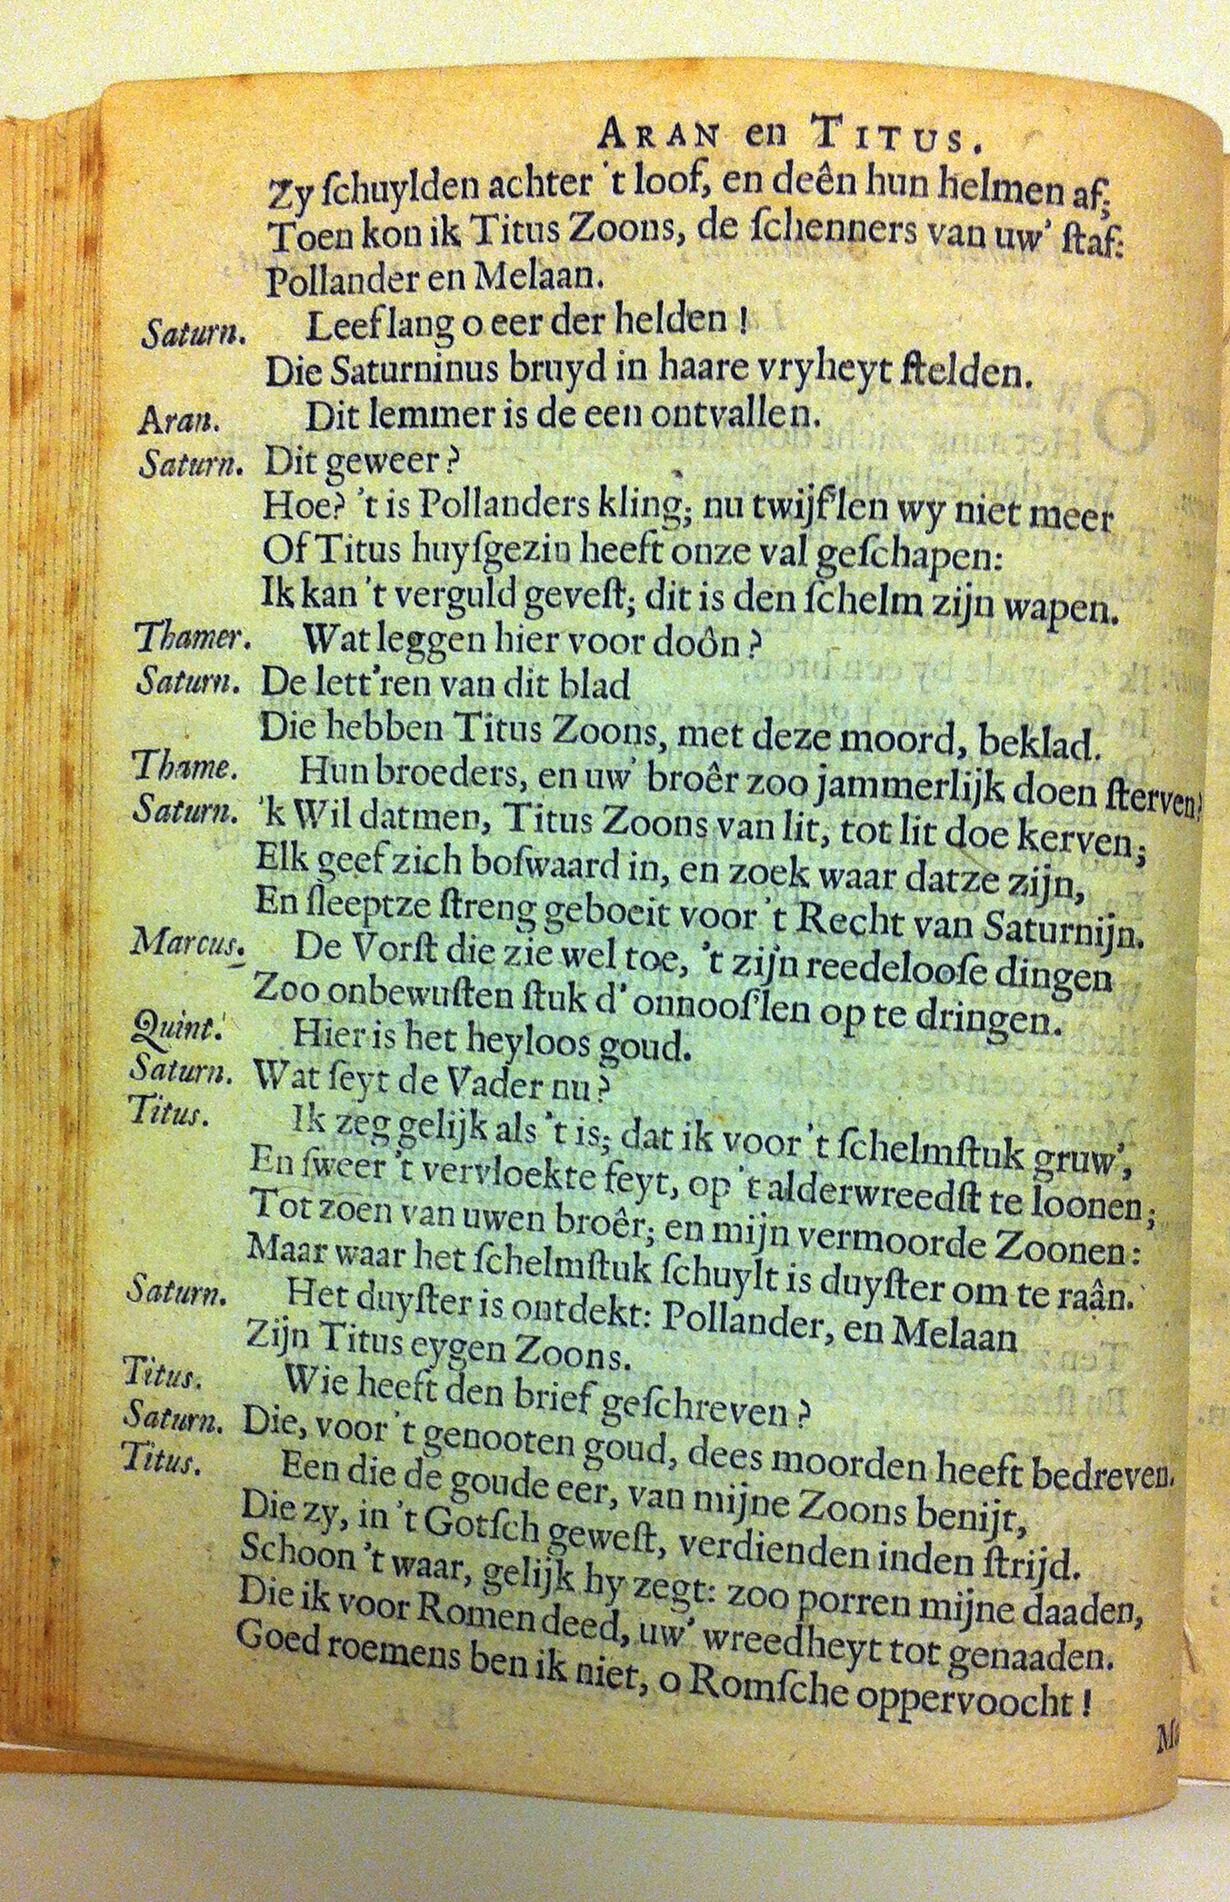 ARAN en TITUS.
Zy ſchuylden achter 't loof, en deên hun helmen af;
Toen kon ik Titus Zoons, de ſchenners van uw' ſtaf:
Pollander en Melaan.
Saturn. Leef lang o eer der helden!
Die Saturninus bruyd in haare vryheyt ſtelden.
Aran. Dit lemmer is de een ontvallen.
Saturn. Dit geweer?
Hoe? 't is Pollanders kling; nu twijf'len wy niet meer
Of Titus huyſgezin heeft onze val geſchapen:
Ik kan 't verguld geveſt; dit is den ſchelm zijn wapen.
Thamer. Wat leggen hier voor doôn?
Saturn. De lett'ren van dit blad
Die hebben Titus Zoons, met deze moord, beklad.
Thame. Hun broeders, en uw' broêr zoo jammerlijk doen ſterven?
Saturn. 'k Wil datmen, Titus Zoons van lit, tot lit doe kerven;
Elk geef zich boſwaard in, en zoek waar datze zijn,
En ſleeptze ſtreng geboeit voor 't Recht van Saturnijn.
Marcus. De Vorſt die zie wel toe, 't zijn reedelooſe dingen
Zoo onbewuſten ſtuk d' onnooſ'len op te dringen.
Quint. Hier is het heyloos goud.
Saturn. Wat ſeyt de Vader nu?
Titus. Ik zeg gelijk als 't is; dat ik voor 't ſchelmſtuk gruw',
En ſweer 't vervloekte feyt, op 't alderwreedſt te loonen;
Tot zoen van uwen broêr; en mijn vermoorde Zoonen:
Maar waar het ſchelmſtuk ſchuylt is duyſter om te raân.
Saturn. Het duyſter is ontdekt: Pollander, en Melaan
Zijn Titus eygen Zoons.
Titus. Wie heeft den brief geſchreven?
Saturn. Die, voor 't genooten goud, dees moorden heeft bedreven.
Titus. Een die de goude eer, van mijne Zoons benijt,
Die zy, in 't Gotſch geweſt, verdienden inden ſtrijd.
Schoon 't waar, gelijk hy zegt: zoo porren mijne daaden,
Die ik voor Romen deed, uw' wreedheyt tot genaaden.
Goed roemens ben ik niet, o Romſche oppervoocht!